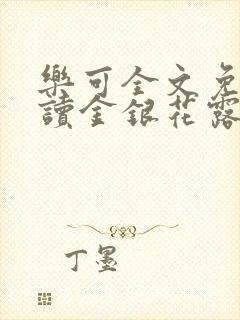 樂可全文免
讀金銀花露
丁墨